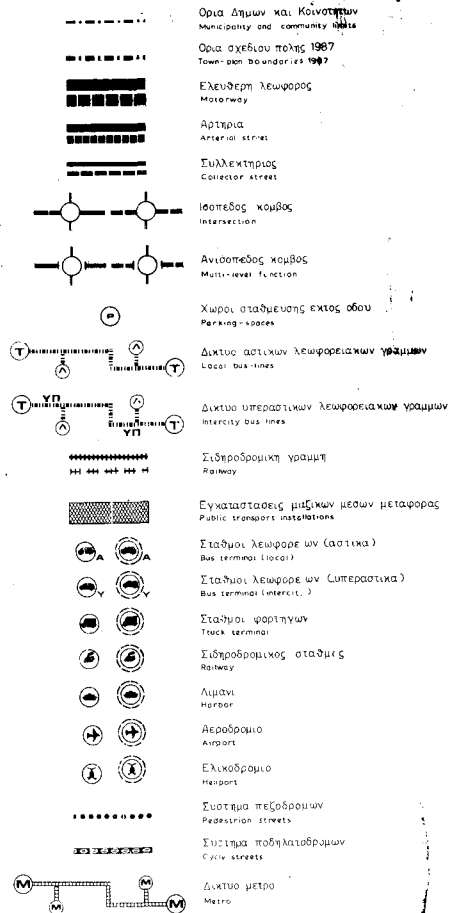 Ορια Δημων και Κοινοτητων
Municipality and community limits
Ορια σχεδιου πολης 1987
Town-plan boundaries 1987
Ελευθερη λεωφορος
Motorway
Αρτηρια
Arterial street
Συλλεκτηριος
Collector street
Ισοπεδος κομβος
Intersection
Ανισοπεδος κομβος
Multi-level function
P
Χωροι σταθμευσης εκτος οδου
Parking-spaces
T Λ Λ T
Δικτυο αστικων λεωφορειακων γραμμων
Local bus-lines
T ΥΠ Λ Λ ΥΠ T
Δικτυο υπεραστικων λεωφορειακων γραμμων
Intercity bus lines
Σιδηροδρομικη γραμμη
Railway
Εγκαταστασεις μαζικων μεσων μεταφορας
Public transport installations
A A
Σταθμοι λεωφορε ων (αστικα)
Bus terminal (local)
Υ Υ
Σταθμοι λεωφορε ων (υπεραστικα)
Bus terminal (intercit. )
Σταθμοι φορτηγων
Truck terminal
Σιδηροδρομικος σταθμες
Railway
Λιμανι
Harbor
Αεροδρομιο
Airport
Ελικοδρομιο
Heliport
Συστημα πεζοδρομων
Pedestrian streets
Συστημα ποδηλατοδρομων
Cycle streets
M M M M
Δικτυο μετρο
Metro